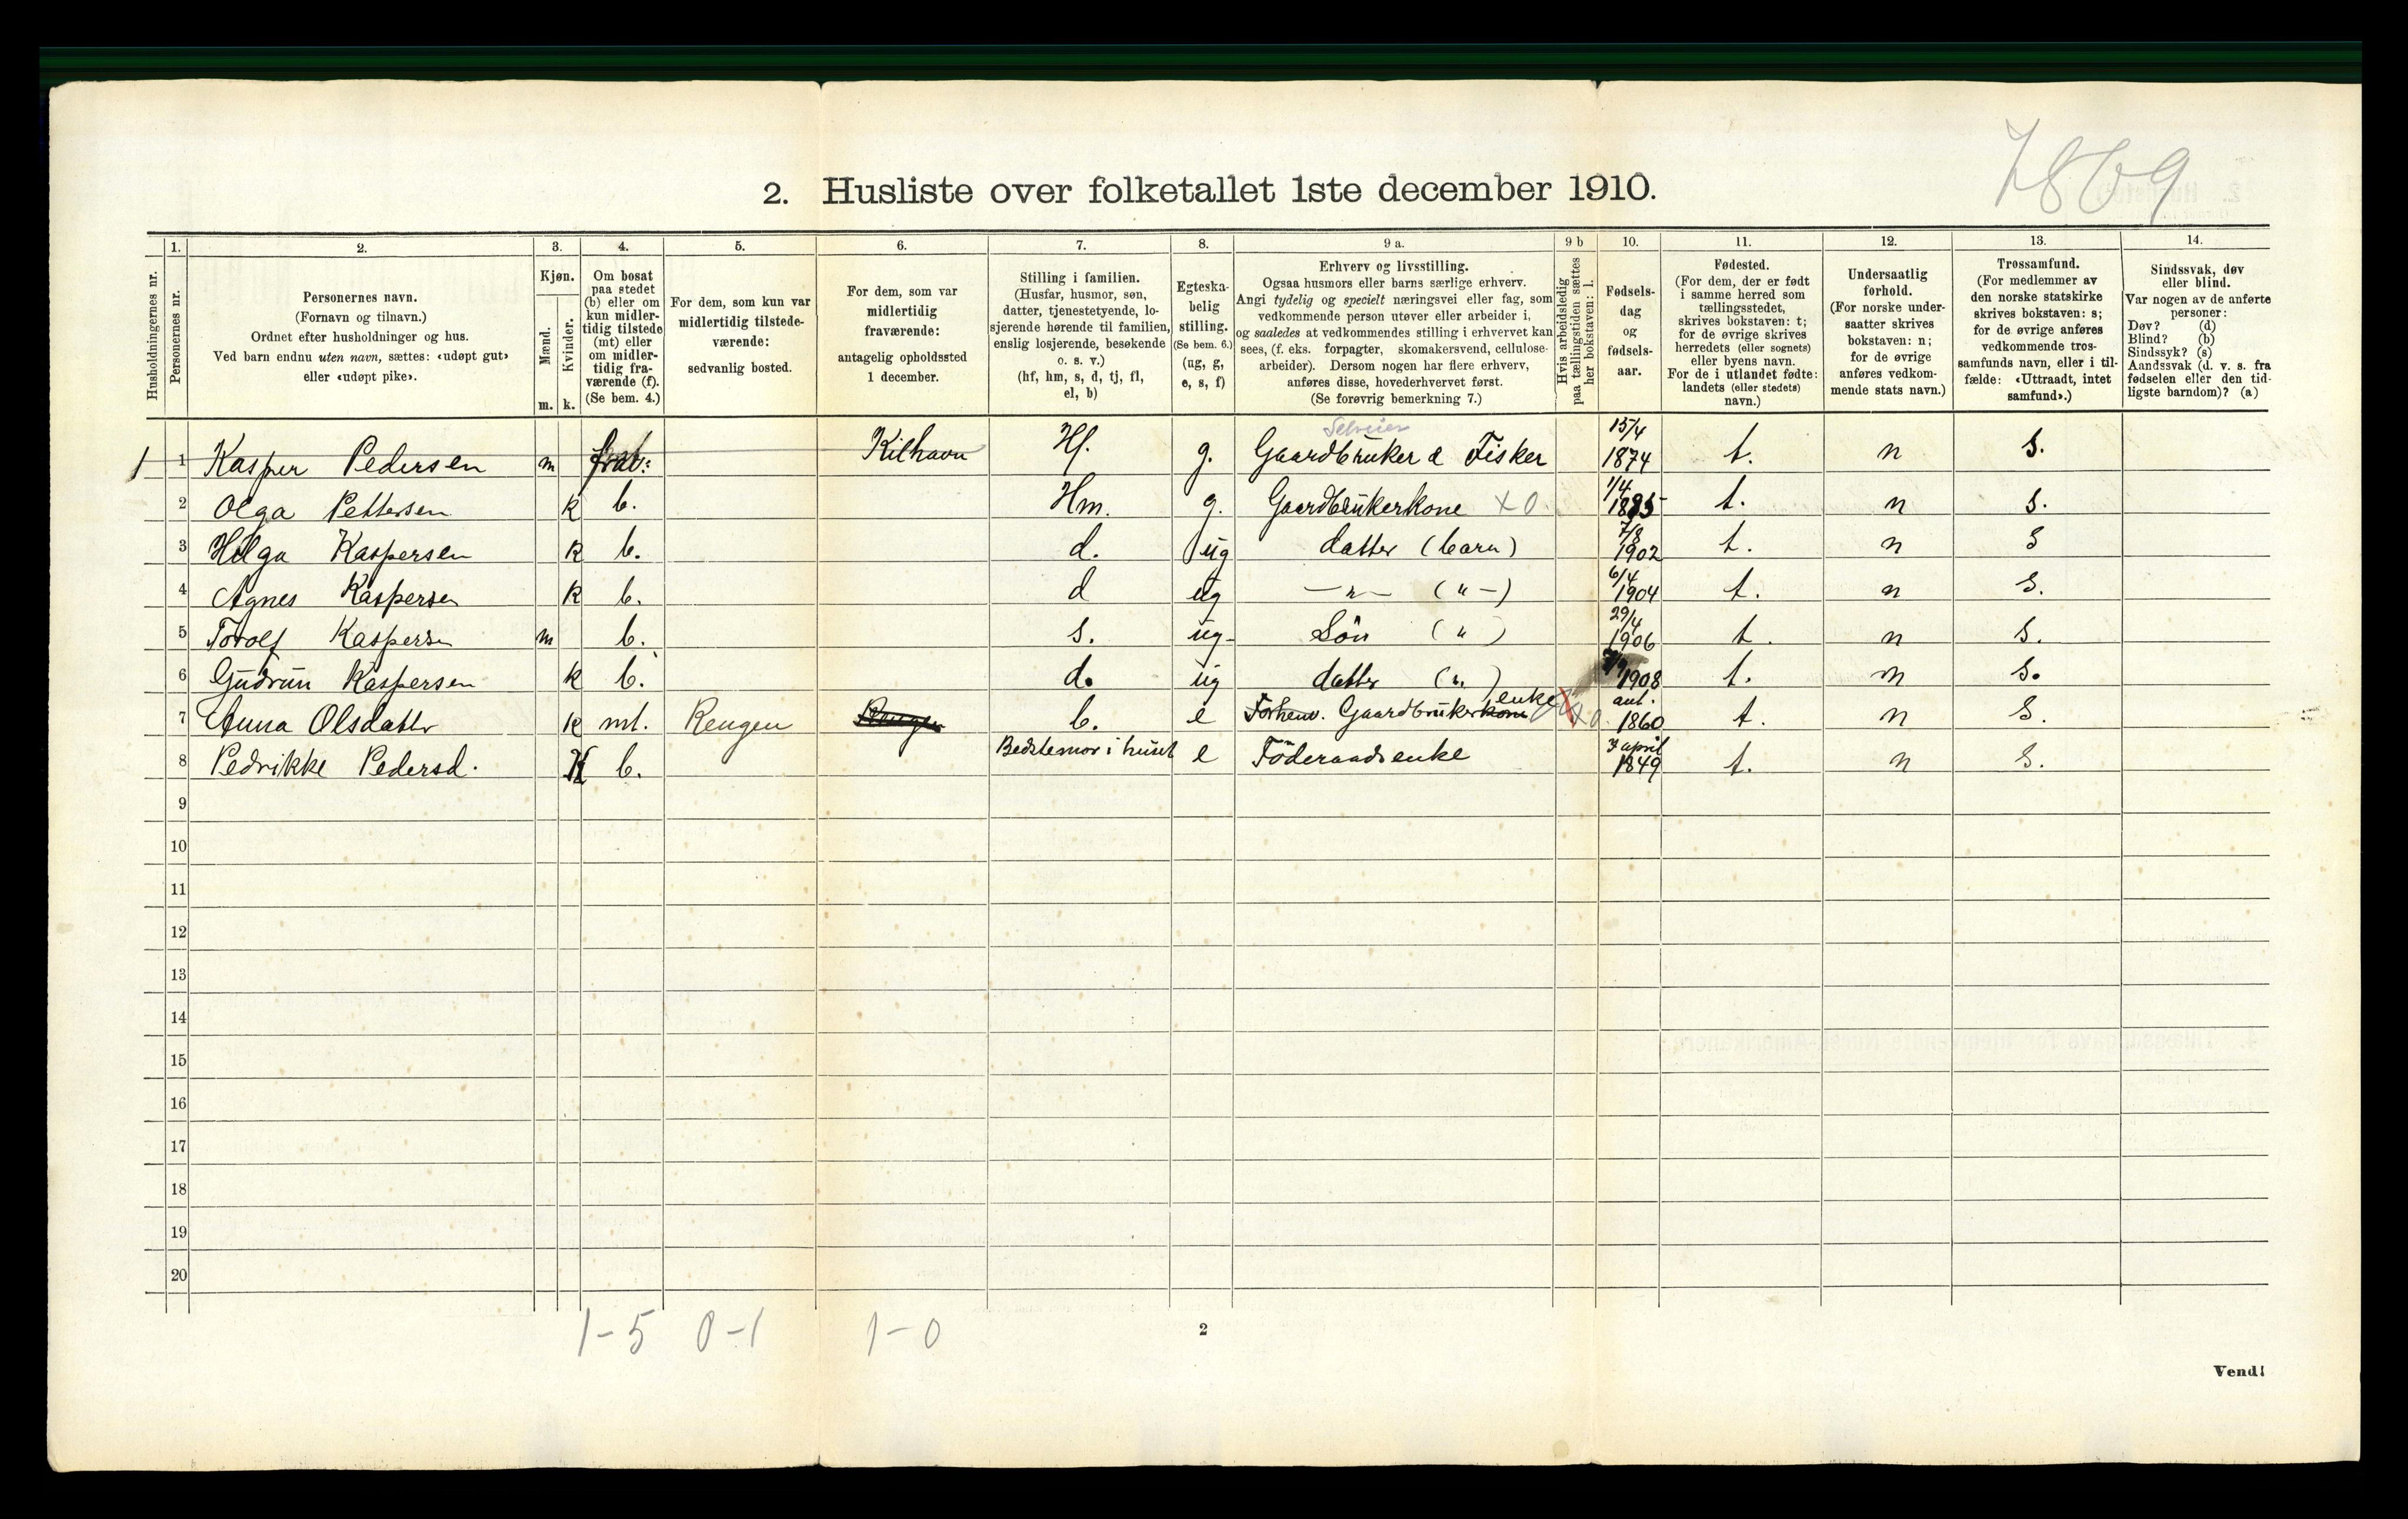 7869
2. Husliste over folketallet 1ste december 1910.
Husholdningernes nr.
1.
Personernes nr.
2.
Personernes navn.
(Fornavn og tilnavn.)
Ordnet efter husholdninger og hus.
Ved barn endnu uten navn, sættes: «udøpt gut»
eller «udøpt pike».
3.
Kjøn.
Mænd.
Kvinder.
m. k.
4.
Om bosat
paa stedet
(b) eller om
kun midler-
tidig tilstede
(mt) eller
om midler-
tidig fra-
værende (f).
(Se bem. 4.)
5.
For dem, som kun var
midlertidig tilstede-
værende:
sedvanlig bosted.
6.
For dem, som var
midlertidig
fraværende:
antagelig opholdssted
1 december.
7.
Stilling i familien.
(Husfar, husmor, søn,
datter, tjenestetyende, lo-
sjerende hørende til familien,
enslig losjerende, besøkende
o. s. v.)
(hf, hm, s, d, tj, fl,
el, b)
8.
Egteska-
belig
stilling.
(Se bem. 6.)
(ug, g,
e, s, f)
9 a.
Erhverv og livsstilling.
Ogsaa husmors eller barns særlige erhverv.
Angi tydelig og specielt næringsvei eller fag, som
vedkommende person utøver eller arbeider i,
og saaledes at vedkommendes stilling i erhvervet kan
sees, (f. eks. forpagter, skomakersvend, cellulose-
arbeider). Dersom nogen har flere erhverv,
anføres disse, hovederhvervet først.
(Se forøvrig bemerkning 7.)
9 b
Hvis arbeidsledig
paa tællingstiden sættes
her bokstaven: l.
10.
Fødsels-
dag
og
fødsels-
aar.
11.
Fødested.
(For dem, der er født
i samme herred som
tællingsstedet,
skrives bokstaven: t;
for de øvrige skrives
herredets (eller sognets)
eller byens navn.
For de i utlandet fødte:
landets (eller stedets)
navn.)
12.
Undersaatlig
forhold.
(For norske under-
saatter skrives
bokstaven: n;
for de øvrige
anføres vedkom-
mende stats navn.)
13.
Trossamfund.
(For medlemmer av
den norske statskirke
skrives bokstaven: s;
for de øvrige anføres
vedkommende tros-
samfunds navn, eller i til-
fælde: «Uttraadt, intet
samfund».)
14.
Sindssvak, døv
eller blind.
Var nogen av de anførte
personer:
Døv? (d)
Blind? (b)
Sindssyk? (s)
Aandssvak (d. v. s. fra
fødselen eller den tid-
ligste barndom)? (a)
Selveier
1 1 Kasper Pedersen m frav: Kilhavn Hf. g. Gaardbruker & Fisker 15/4 1874 t. n s.
2 Olga Pettersen k b. Hm. g. Gaardbrukerkone x 0. 1/4 1885 t. n s.
3 Helga Kaspersen k b. d. ug datter (barn) 7/8 1902 t. n s
4 Agnes Kaspersen k b. d ug —"— ("—) 6/4 1904 t. n s.
5 Torolf Kaspersen m b. s. ug- Søn (") 29/4 1906 t. n s.
6 Gudrun Kaspersen k b. d. ug datter (") 1908 t. n s.
7 Anna Olsdatter k mt. Rengen Rengen b. e Forhenv. Gaardbrukerkone enke x 0 ant. 1860 t. n s.
8 Pedrikke Pedersd. K b. Bedstemor i huset e Föderaadsenke 7 april 1849 t. n s.
9
10
11
12
13
14
15
16
17
18
19
20
1-5 0-1 1-0
2
Vend!